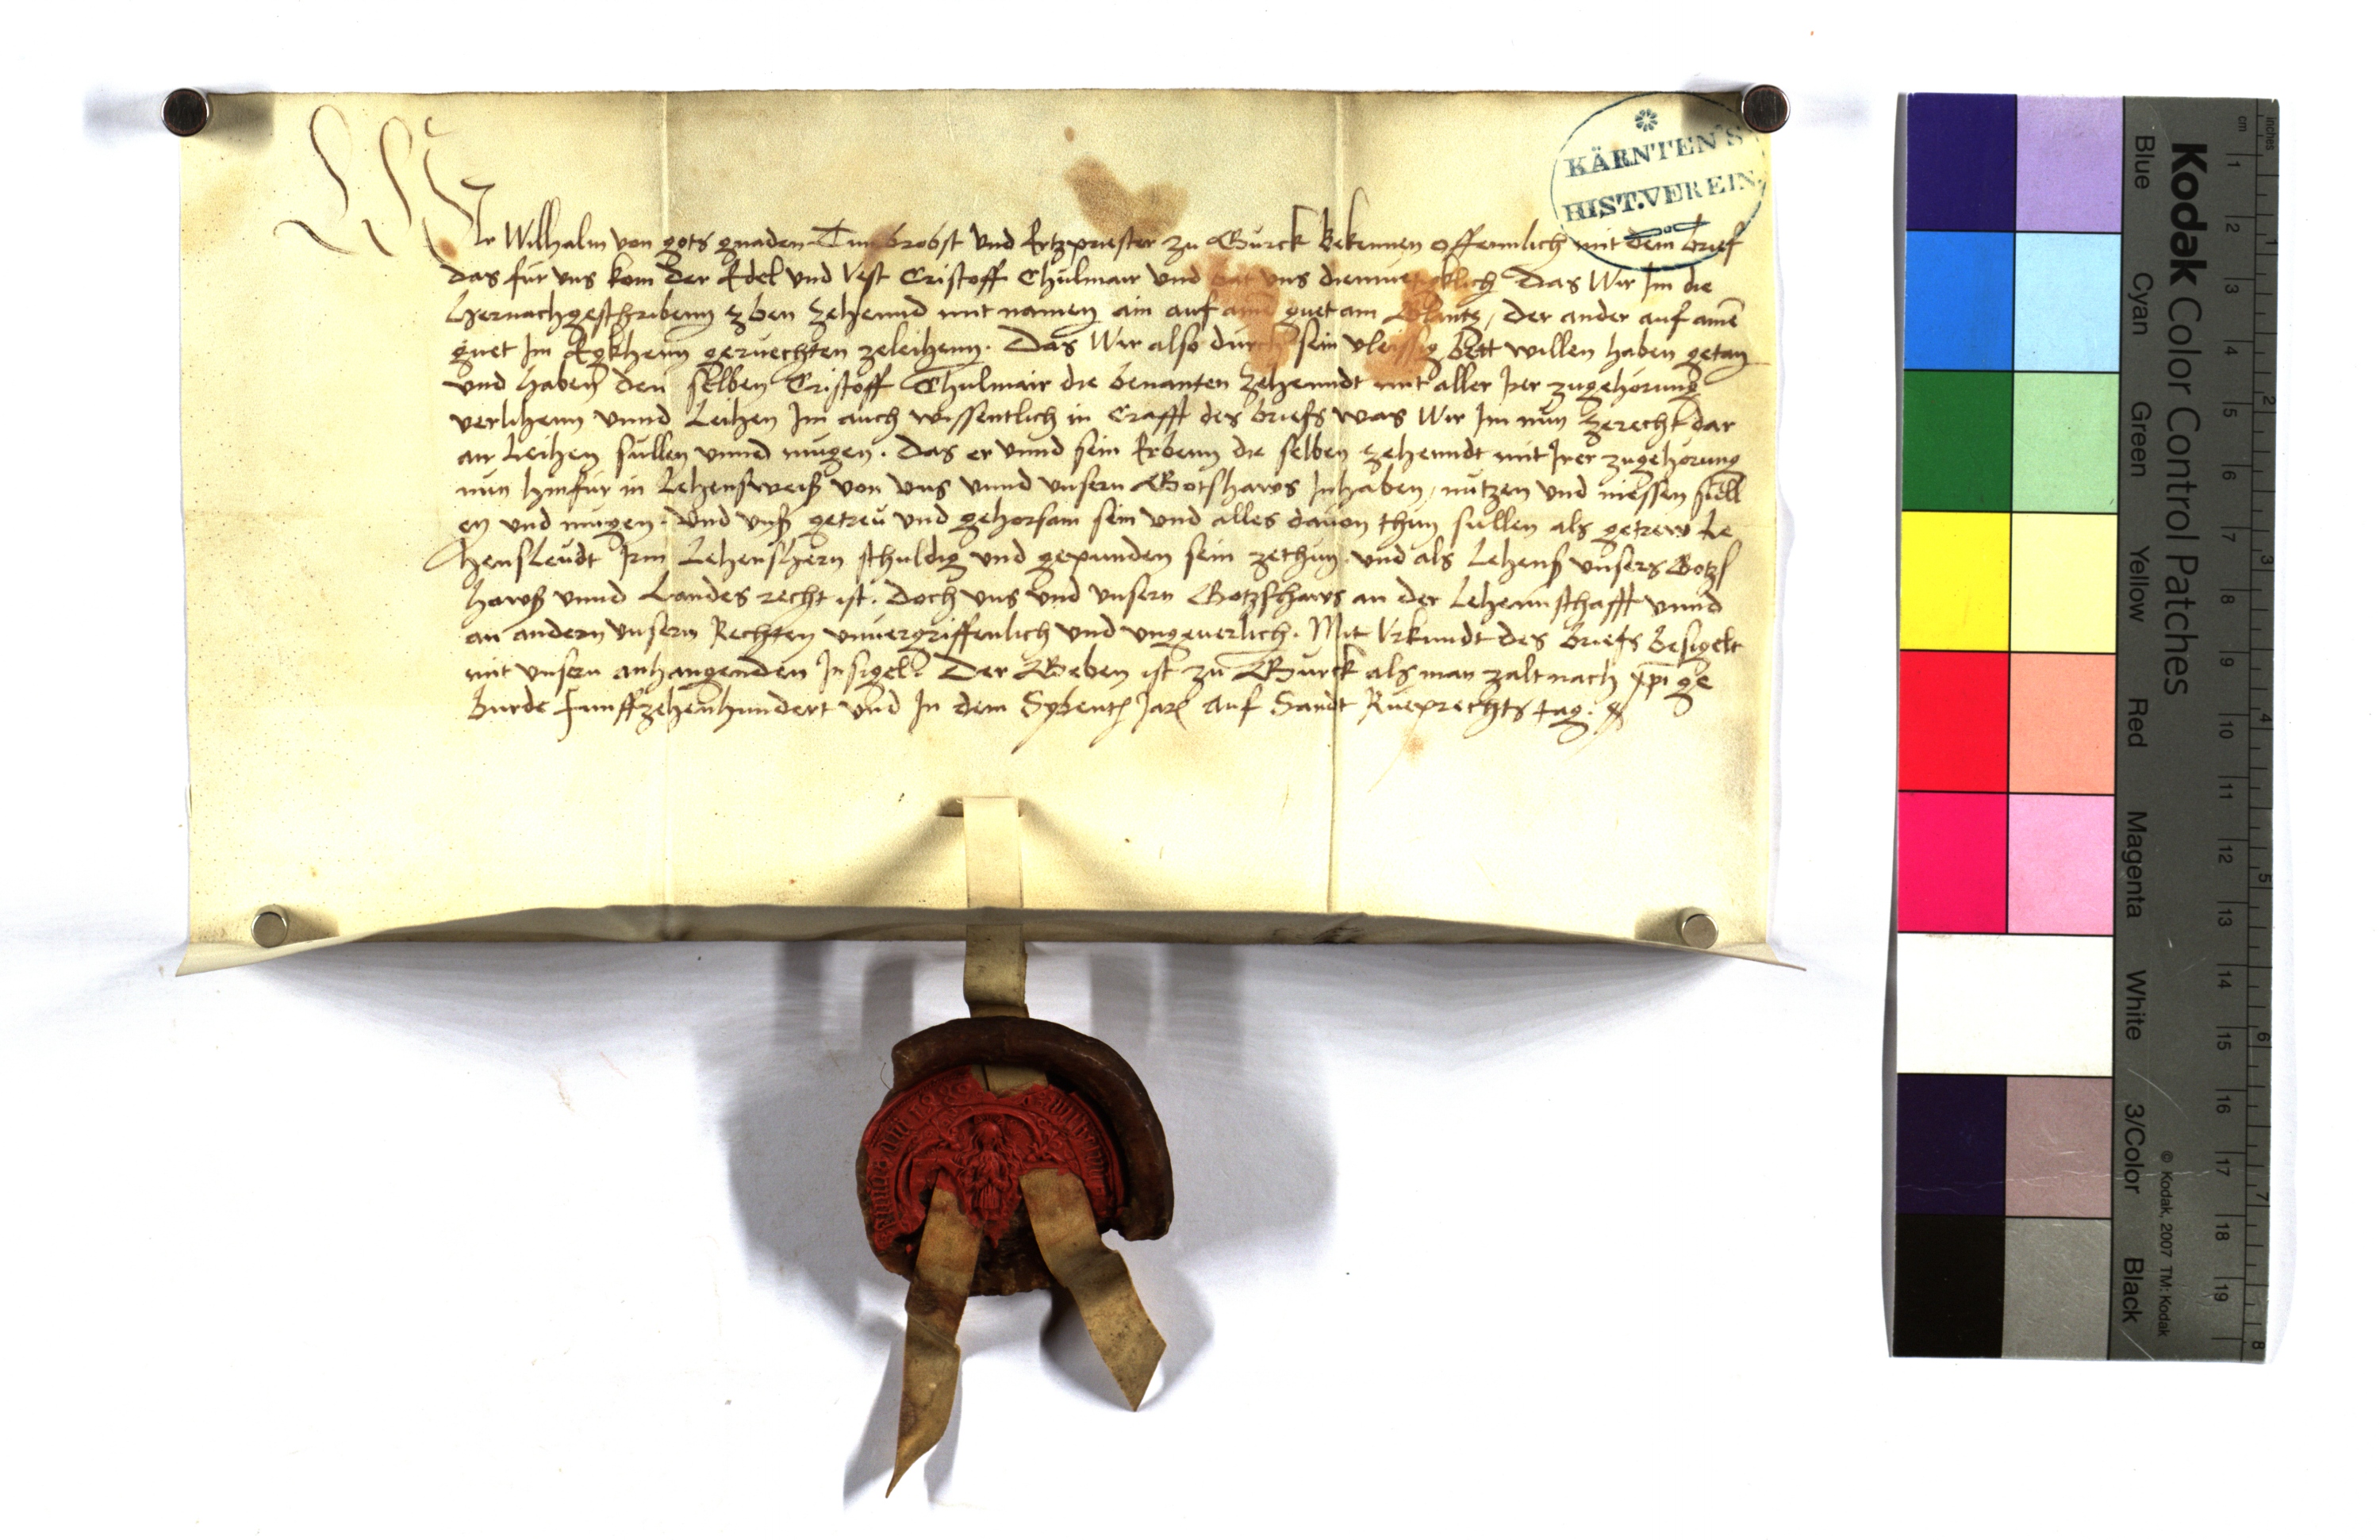 KÄRNTEN'S
HIST. VEREIN.
WIr Wilhalm von gots gnaden Tumbrobst und Ertzpriester zu Gurck Bekennen offennlich mit dem brief
das für uns kom der Edel und Vest Cristoff Chulmair und bat uns diemuetcklich Das Wir Im die
hernachgeschribenn zben zehennd mit namen ain auf aim guet am Plants, der ander auf aine
guet Im Egkhenn geruechten zeleihenn. Das Wir also durch sein vleissig bett willen haben getan
und haben den selben Cristoff Chulmair die benanten zehenndt mit aller Irer zugehorung
verlihenn unnd Leihen Im auch wissentlich in Crafft des briefs was Wir Im nun zerecht dar
an Leihen sullen unnd mugen. Das er unnd sein Erbenn die selben zehenndt mit Irer zugehorung
nun hinfur in Lehensweiß von uns unnd unsern Gotshaws Inhaben, nutzen und niessen süll
en und mugen. Und unß getreu und gehorsam sein und alles davon thun sullen als getrew Le
hensleudt Irm Lehenshern schuldig und gepunden sein zethun und als Lehenß unsers Gotzs
hawß unnd Landes recht ist. Doch uns und unsern Gotzshaws an der Lehennschafft unnd
an andern unsern Rechten unvergriffenlich und ungeverlich. Mit Urkundt des briefs besigelt
mit unsern anhangenden Insigel. Der Geben ist zu Gurck als man zalt nach xpi ge
burde Funffzehenhundert und In dem Sybentn Jar Auf Sandt Rueprechts tag.
Kodak Color Control Patches
Blue Cyan Green Yellow Red Magenta White 3/Color Black
© Kodak, 2007 TM: Kodak
cm 1 2 3 4 5 6 7 8 9 10 11 12 13 14 15 16 17 18 19
inches 1 2 3 4 5 6 7 8